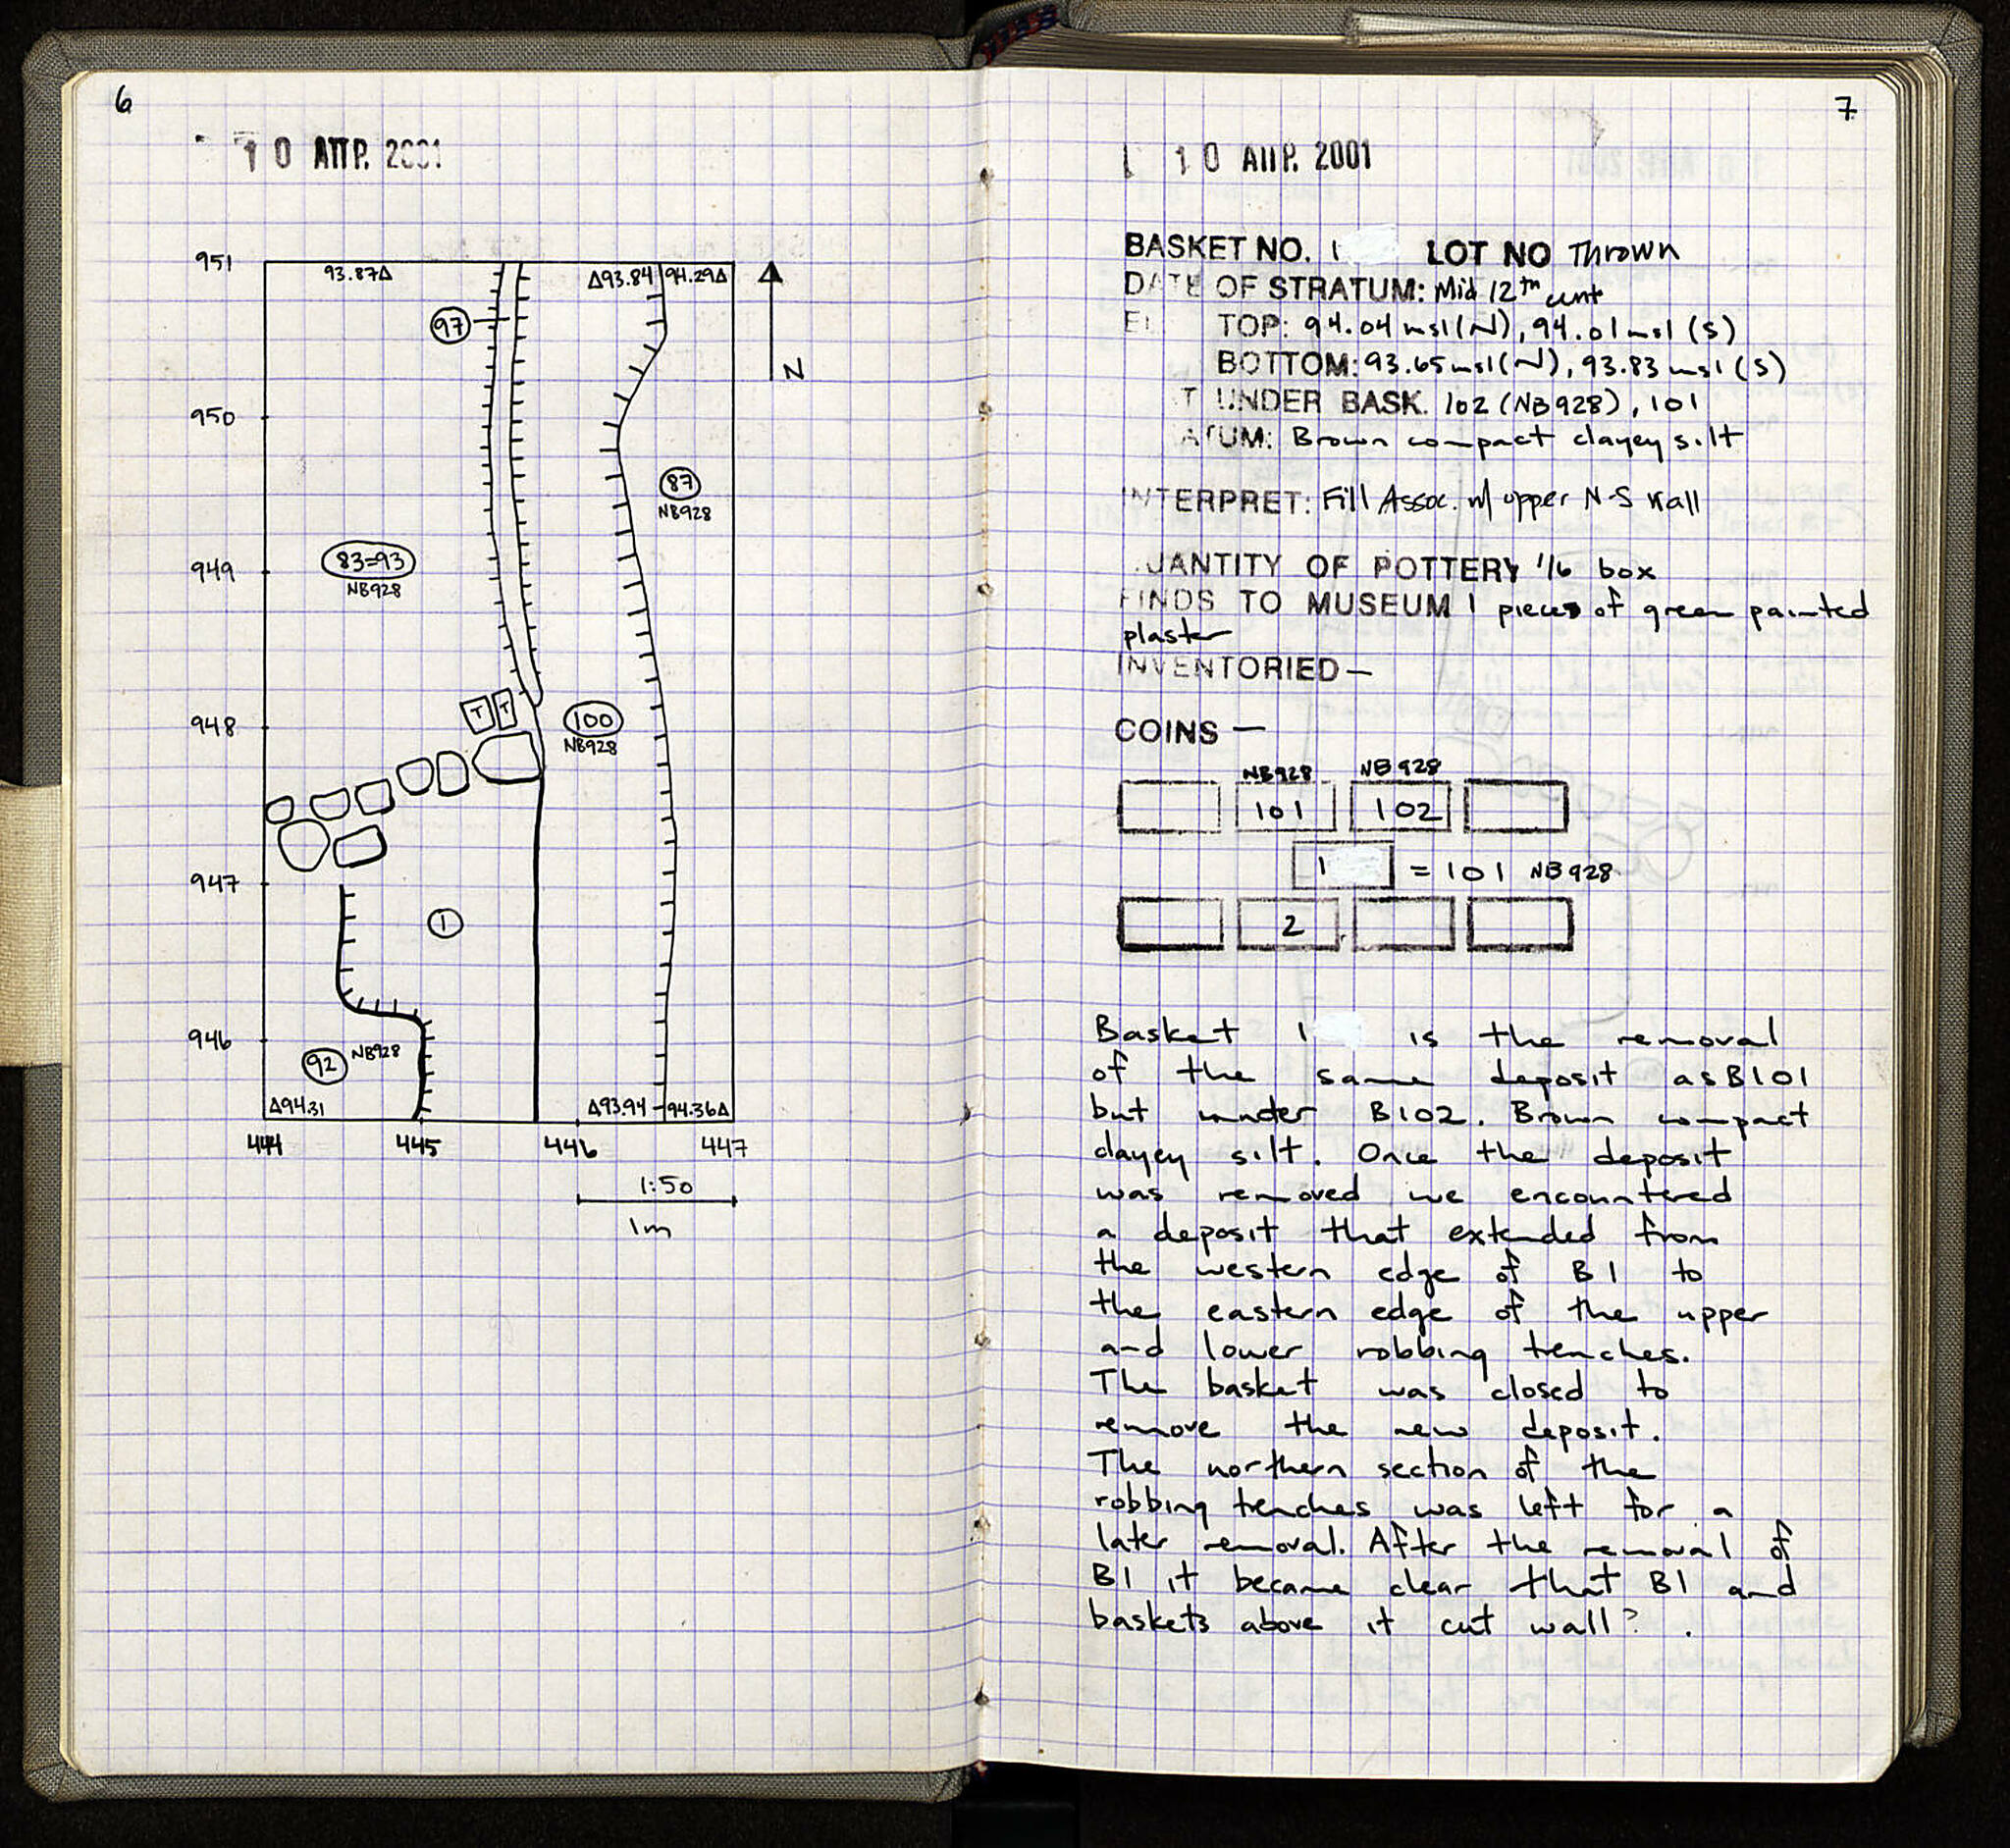 6
10 ΑΠΡ. 2001
951
93.87Δ
Δ93.84
94.29Δ
97
N
950
87
NB928
83=93
NB928
949
T T
948
100
NB928
947
1
946
92 NB928
Δ94.31
Δ93.94
94.36Δ
444
445
446
447
1:50
1m
7
10 ΑΠΡ. 2001
BASKET NO. 1 LOT NO Thrown
DATE OF STRATUM: Mid 12th cent
EL TOP: 94.04 msl (N), 94.01 msl (S)
BOTTOM: 93.65 msl (N), 93.83 msl (S)
T UNDER BASK. 102 (NB928), 101
ATUM: Brown compact clayey silt
INTERPRET: Fill Assoc. w/ upper N-S Wall
UANTITY OF POTTERY 1/6 box
FINDS TO MUSEUM 1 pieces of green painted
plaster
INVENTORIED —
COINS —
NB928 NB928
101 102
1 = 101 NB928
2
Basket 1 is the removal
of the same deposit as B101
but under B102. Brown compact
clayey silt. Once the deposit
was removed we encountered
a deposit that extended from
the western edge of B1 to
the eastern edge of the upper
and lower robbing trenches.
The basket was closed to
remove the new deposit.
The northern section of the
robbing trenches was left for a
later removal. After the removal of
B1 it became clear that B1 and
baskets above it cut wall? .